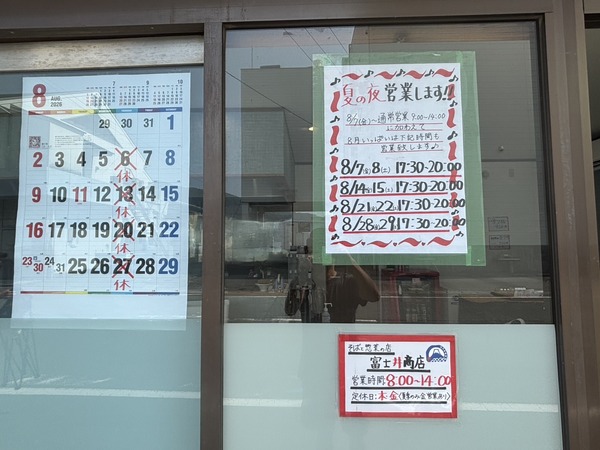 8 AUG. 2026
29 30 31 1
2 3 4 5 6 7 8
休
9 10 11 12 13 14 15
休
16 17 18 19 20 21 22
休
23/30 24/31 25 26 27 28 29
休
夏の夜 営業します!!
8/7(金)〜通常営業 9:00-14:00
に加わえて
8月いっぱいは下記時間も
営業致します♪
8/7(金)8(土) 17:30-20:00
8/14(金)15(土) 17:30-20:00
8/21(金)22(土) 17:30-20:00
8/28(金)29(土) 17:30-20:00
そばと惣菜の店
富士井商店
営業時間 8:00〜14:00
定休日:木・金(夏季のみ金営業あり)